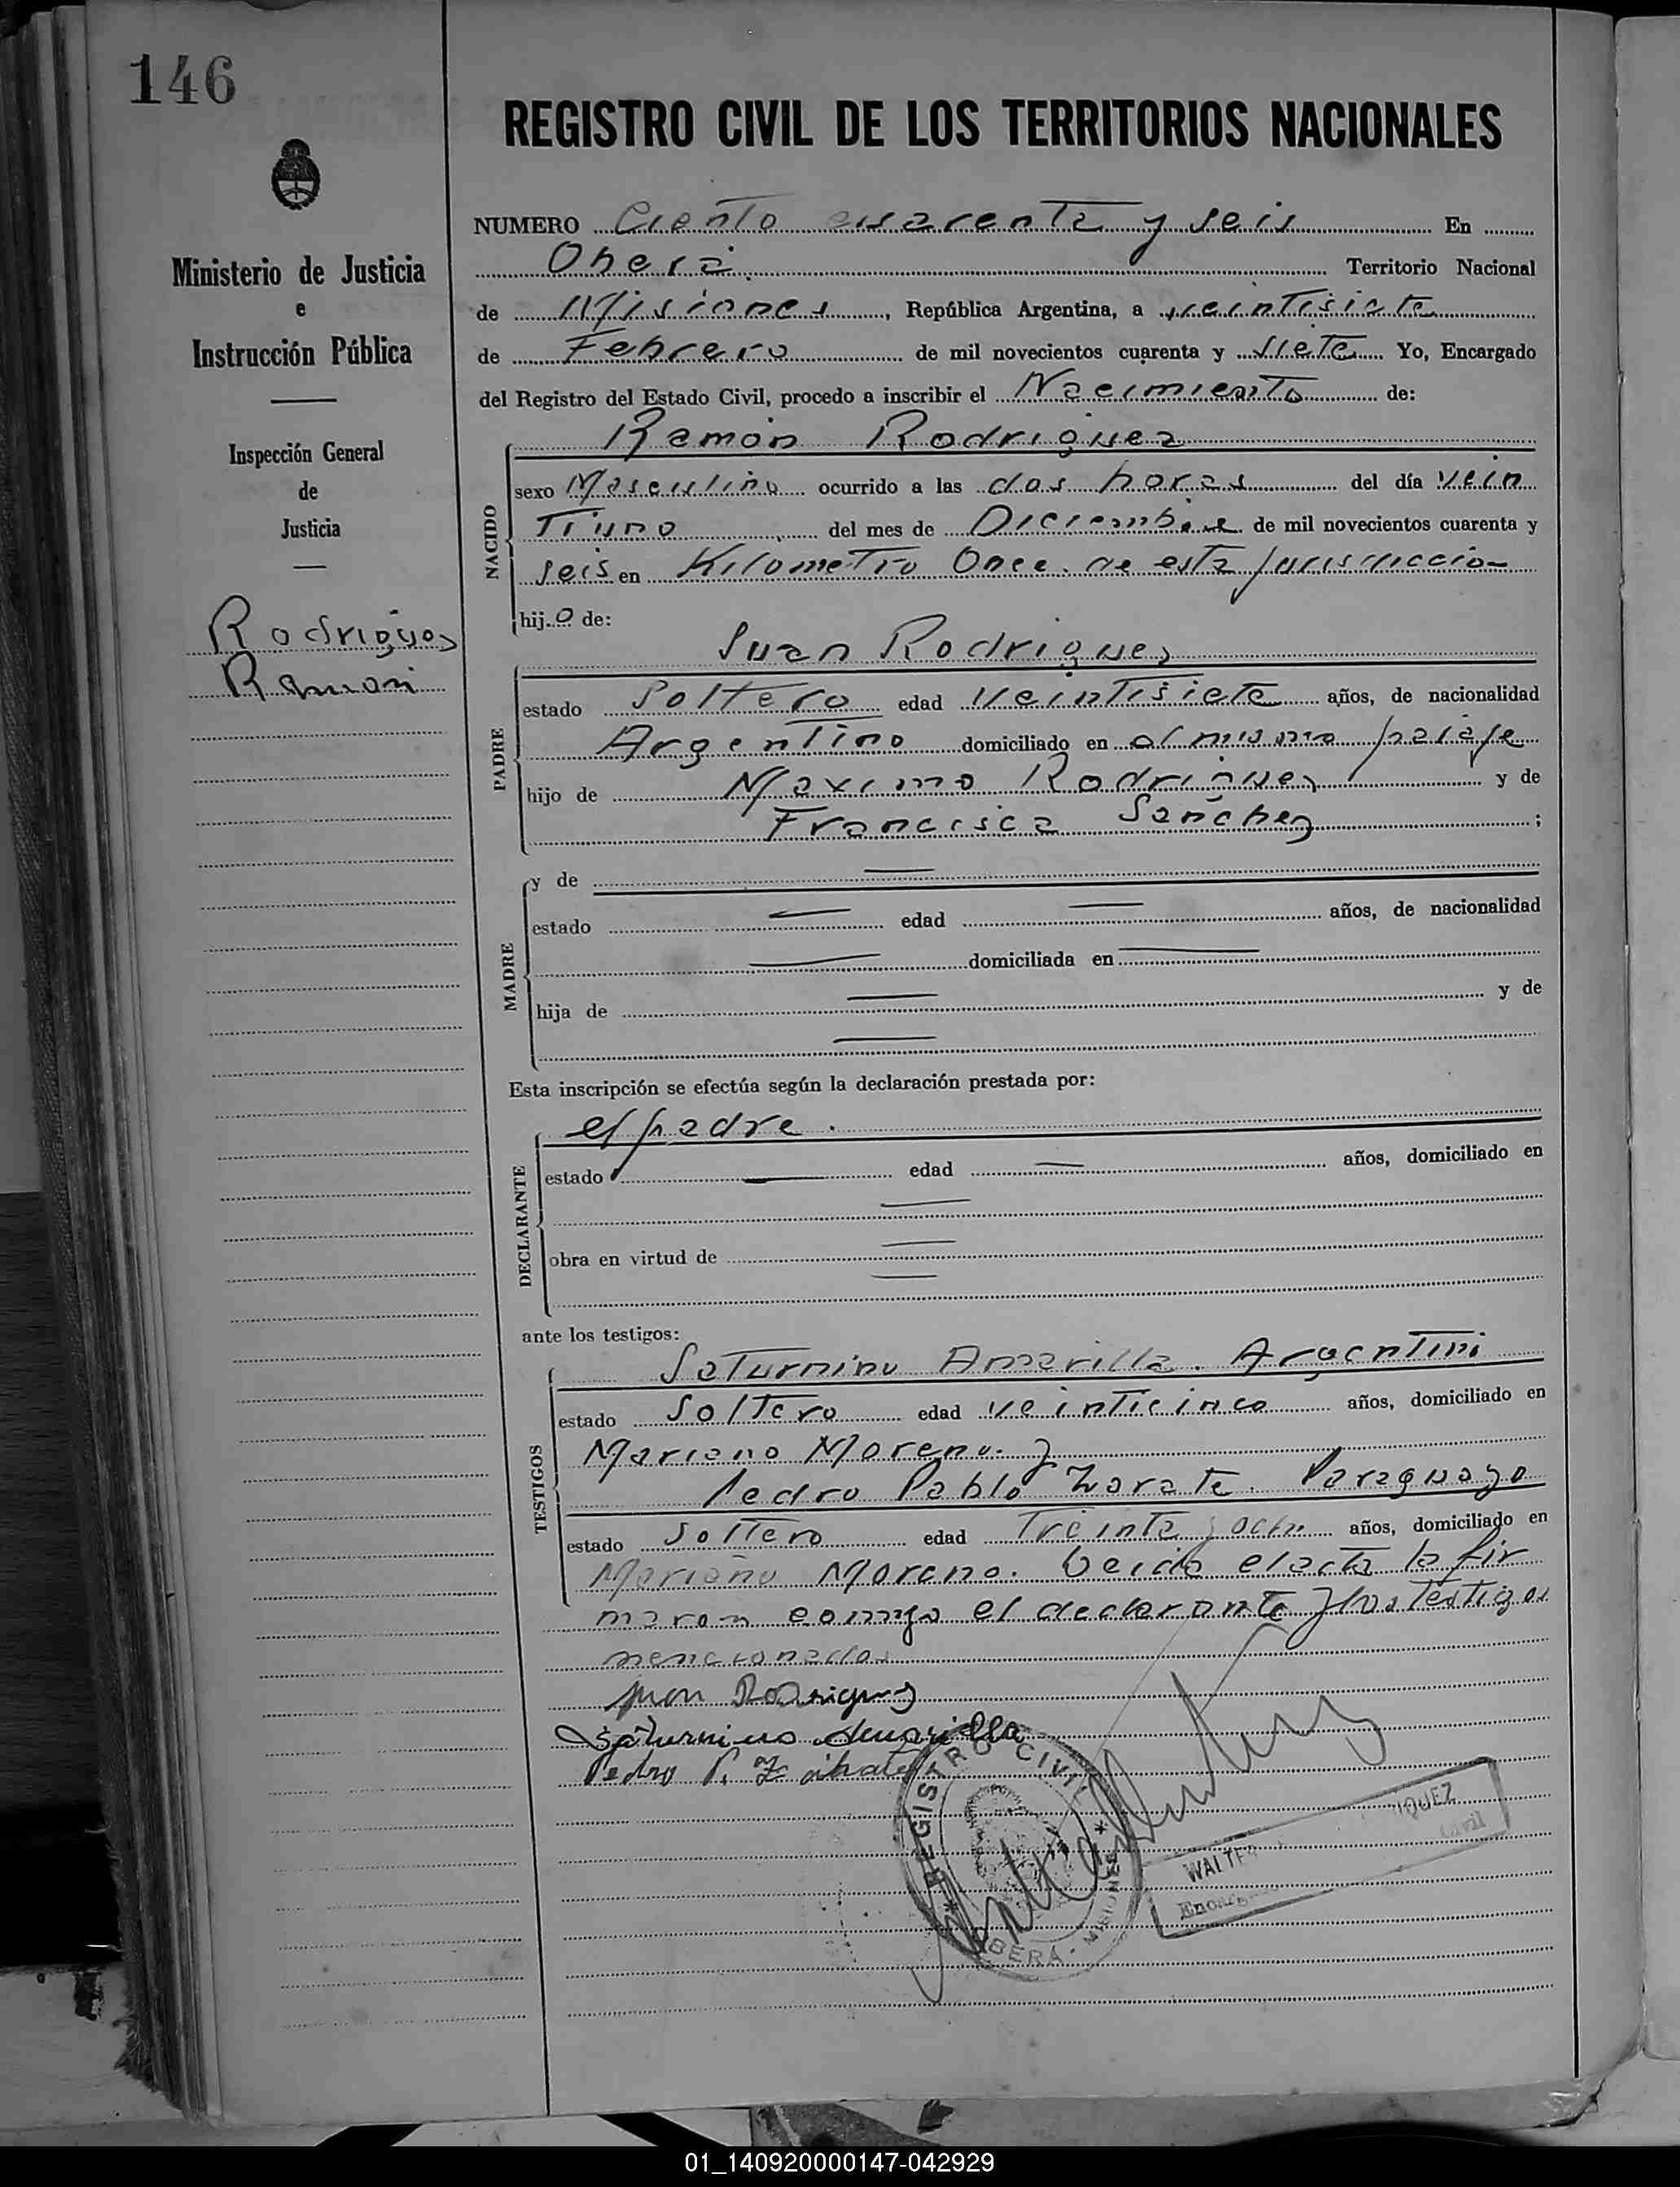 146
REGISTRO CIVIL DE LOS TERRITORIOS NACIONALES
Ministerio de Justicia
e
Instrucción Pública
Inspección General
de
Justicia
Rodriguez
Ramon
NUMERO Ciento cuarenta y seis En
Oberá. Territorio Nacional
de Misiones, República Argentina, a veintisiete
de Febrero de mil novecientos cuarenta y siete Yo, Encargado
del Registro del Estado Civil, procedo a inscribir el Nacimiento de:
NACIDO
Ramón Rodriguez
sexo Masculino ocurrido a las dos horas del día vein
tiuno del mes de Diciembre de mil novecientos cuarenta y
seis en Kilometro Once de esta jurisdiccion
hijo de:
PADRE
Juan Rodriguez
estado Soltero edad veintisiete años, de nacionalidad
Argentino domiciliado en al mismo paraje
hijo de Maximo Rodriguez y de
Francisca Sanchez;
MADRE
y de —
estado — edad — años, de nacionalidad
— domiciliada en —
hija de — y de
—
Esta inscripción se efectúa según la declaración prestada por:
DECLARANTE
el padre.
estado — edad — años, domiciliado en
—
obra en virtud de —
—
ante los testigos:
TESTIGOS
Saturnino Amarilla. Argentino
estado Soltero edad veinticinco años, domiciliado en
Mariano Moreno. y
Pedro Pablo Zarate. Paraguayo
estado soltero edad Treinta y ocho años, domiciliado en
Mariano Moreno. Leida el acta la fir
maron conmigo el declarante y los testigos
mencionados
Juan Rodriguez
Saturnino Amarilla
Pedro P. Zarate
REGISTRO CIVIL
OBERA · MISIONES
WALTE IQUEZ
Encarg Civil
01_140920000147-042929